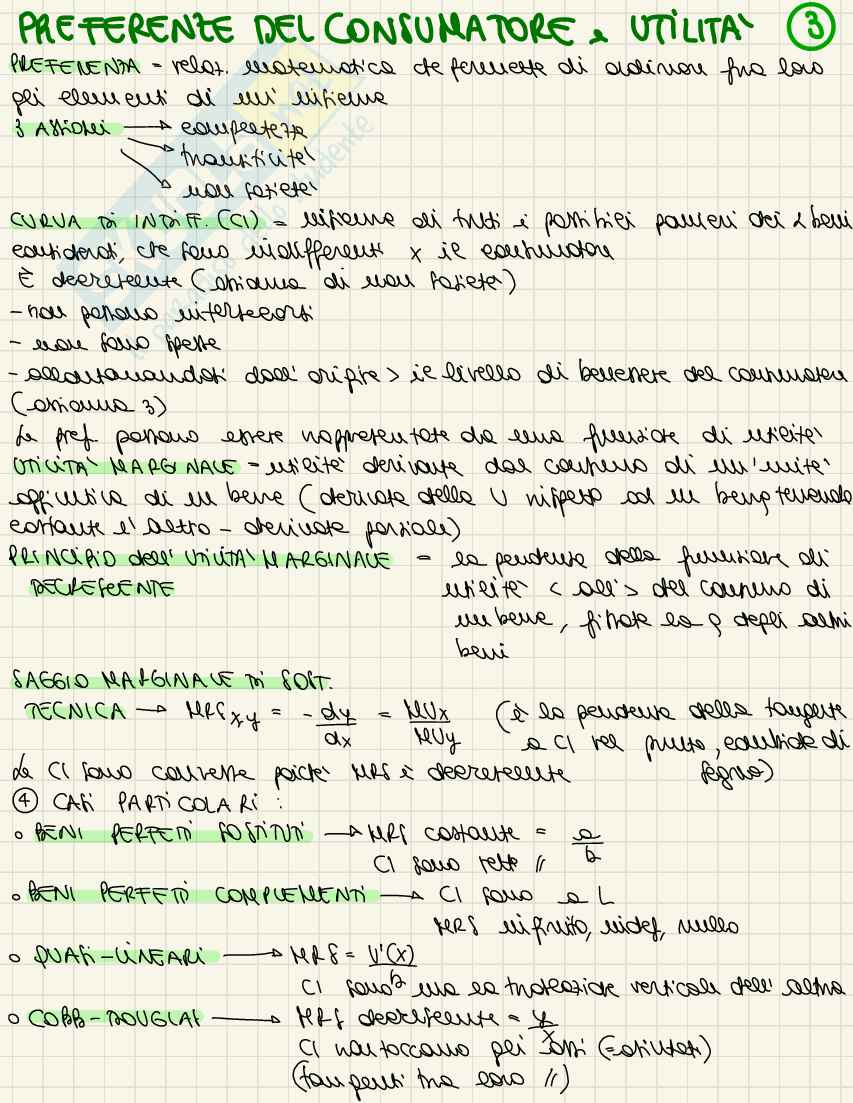 PREFERENZE DEL CONSUMATORE e UTILITA' 3
PREFERENZA = relaz. matematica che permette di ordinare fra loro
gli elementi di un' insieme
3 ASSIOMI → completezza
→ transitività
→ non sazietà
CURVA DI INDIFF. (CI) = insieme di tutti i possibili panieri dei 2 beni
considerati, che sono indifferenti x il consumatore
È decrescente (assioma di non sazietà)
- non possono intersecarsi
- non sono spesse
- allontanandosi dall' origine > il livello di benessere del consumatore
(assioma 3)
Le pref. possono essere rappresentate da una funzione di utilità
UTILITA' MARGINALE = utilità derivante dal consumo di un'unità
aggiuntiva di un bene (derivata della U rispetto ad un bene tenendo
costante l'altro - derivata parziale)
PRINCIPIO dell' UTILITA' MARGINALE = la pendenza della funzione di
DECRESCENTE utilità < all' > del consumo di
un bene, fissate la q degli altri
beni
SAGGIO MARGINALE DI SOST.
TECNICA → MRS xy = - dy/dx = MUx/MUy (è la pendenza della tangente
a CI nel punto, cambiata di
Le CI sono convesse poiché MRS è decrescente segno)
④ CASI PARTICOLARI :
o BENI PERFETTI SOSTITUTI → MRS costante = a/b
CI sono rette //
o BENI PERFETTI COMPLEMENTI → CI sono a L
MRS infinito, indef, nullo
o QUASI-LINEARI → MRS = U'(x)/b
CI sono una la traslazione verticale dell' altra
o COBB-DOUGLAS → MRS decrescente = y/x
CI non toccano gli assi (=asintoti)
(tangenti tra loro //)